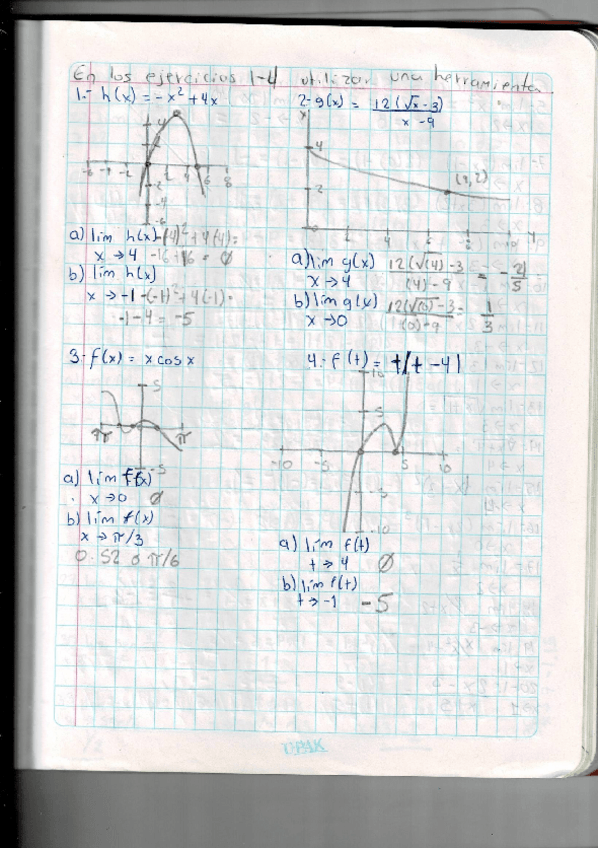 En los ejercicios 1-4 utilizar una herramienta
1.- h(x) = -x² + 4x
4
2
-6 -4 -2 2 4 6 8
-2
-4
-6
a) lim h(x) -(4)² + 4(4) =
x → 4 -16 + 16 = 0
b) lim h(x)
x → -1 -(-1)² + 4(-1) =
-1 - 4 = -5
2.- g(x) = 12(√x - 3)
x - 9
4
2
(9,2)
0 2 4 6 8 10
a) lim g(x) 12(√(4) - 3 = - 2
x → 4 (4) - 9 5
b) lim g(x) 12(√(0) - 3 = 1
x → 0 (0) - 9 3
3.- f(x) = x cos x
5
π π
-5
a) lim f(x)
x → 0 0
b) lim f(x)
x → π/3
0.52 o π/6
4.- f(t) = t|t - 4|
10
5
-10 -5 5 10
-5
-10
a) lim f(t)
t → 4 0
b) lim f(t)
t → -1 -5
UPAK